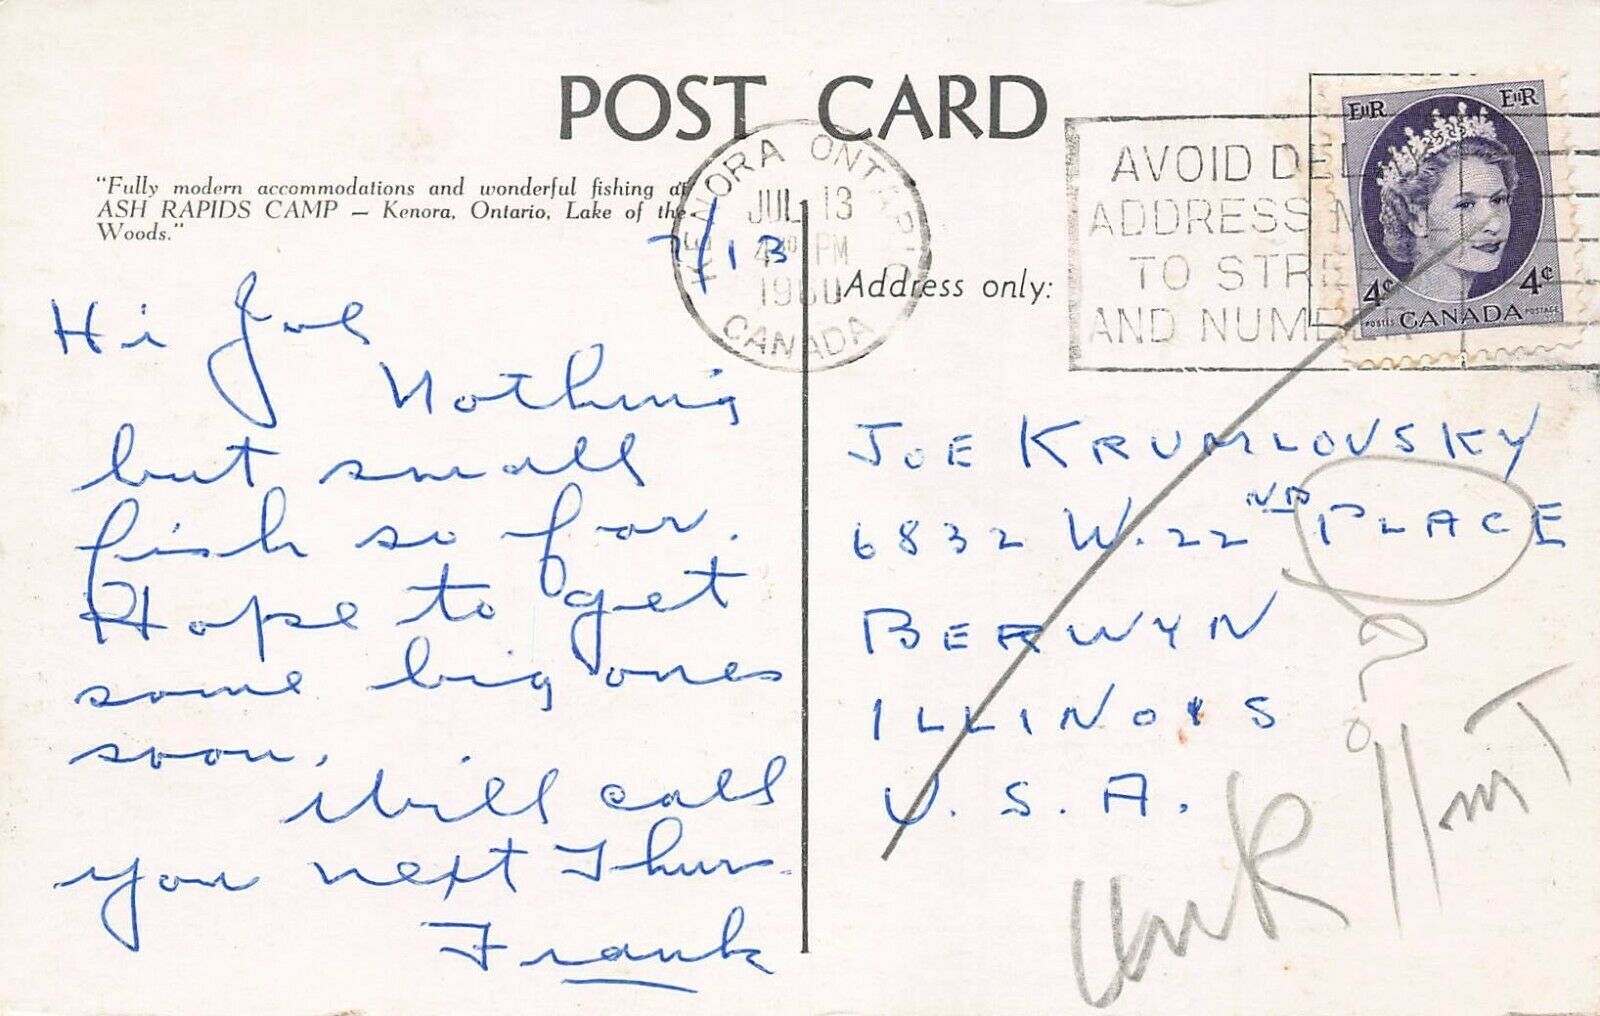 POST CARD
"Fully modern accommodations and wonderful fishing at
ASH RAPIDS CAMP — Kenora, Ontario, Lake of the
Woods."
7/13
Hi Joe
Nothing
but small
fish so far.
Hope to get
some big ones
soon.
Will call
you next Thurs.
Frank
KENORA ONTARIO
JUL 13
PM
1960
CANADA
AVOID DEL
ADDRESS M
TO STREE
AND NUMBER
EIIR EIIR
4¢ 4¢
POSTES CANADA POSTAGE
Address only:
JOE KRUMLOVSKY
6832 W. 22ND PLACE
BERWYN
ILLINOIS
U.S.A.
?
Unk